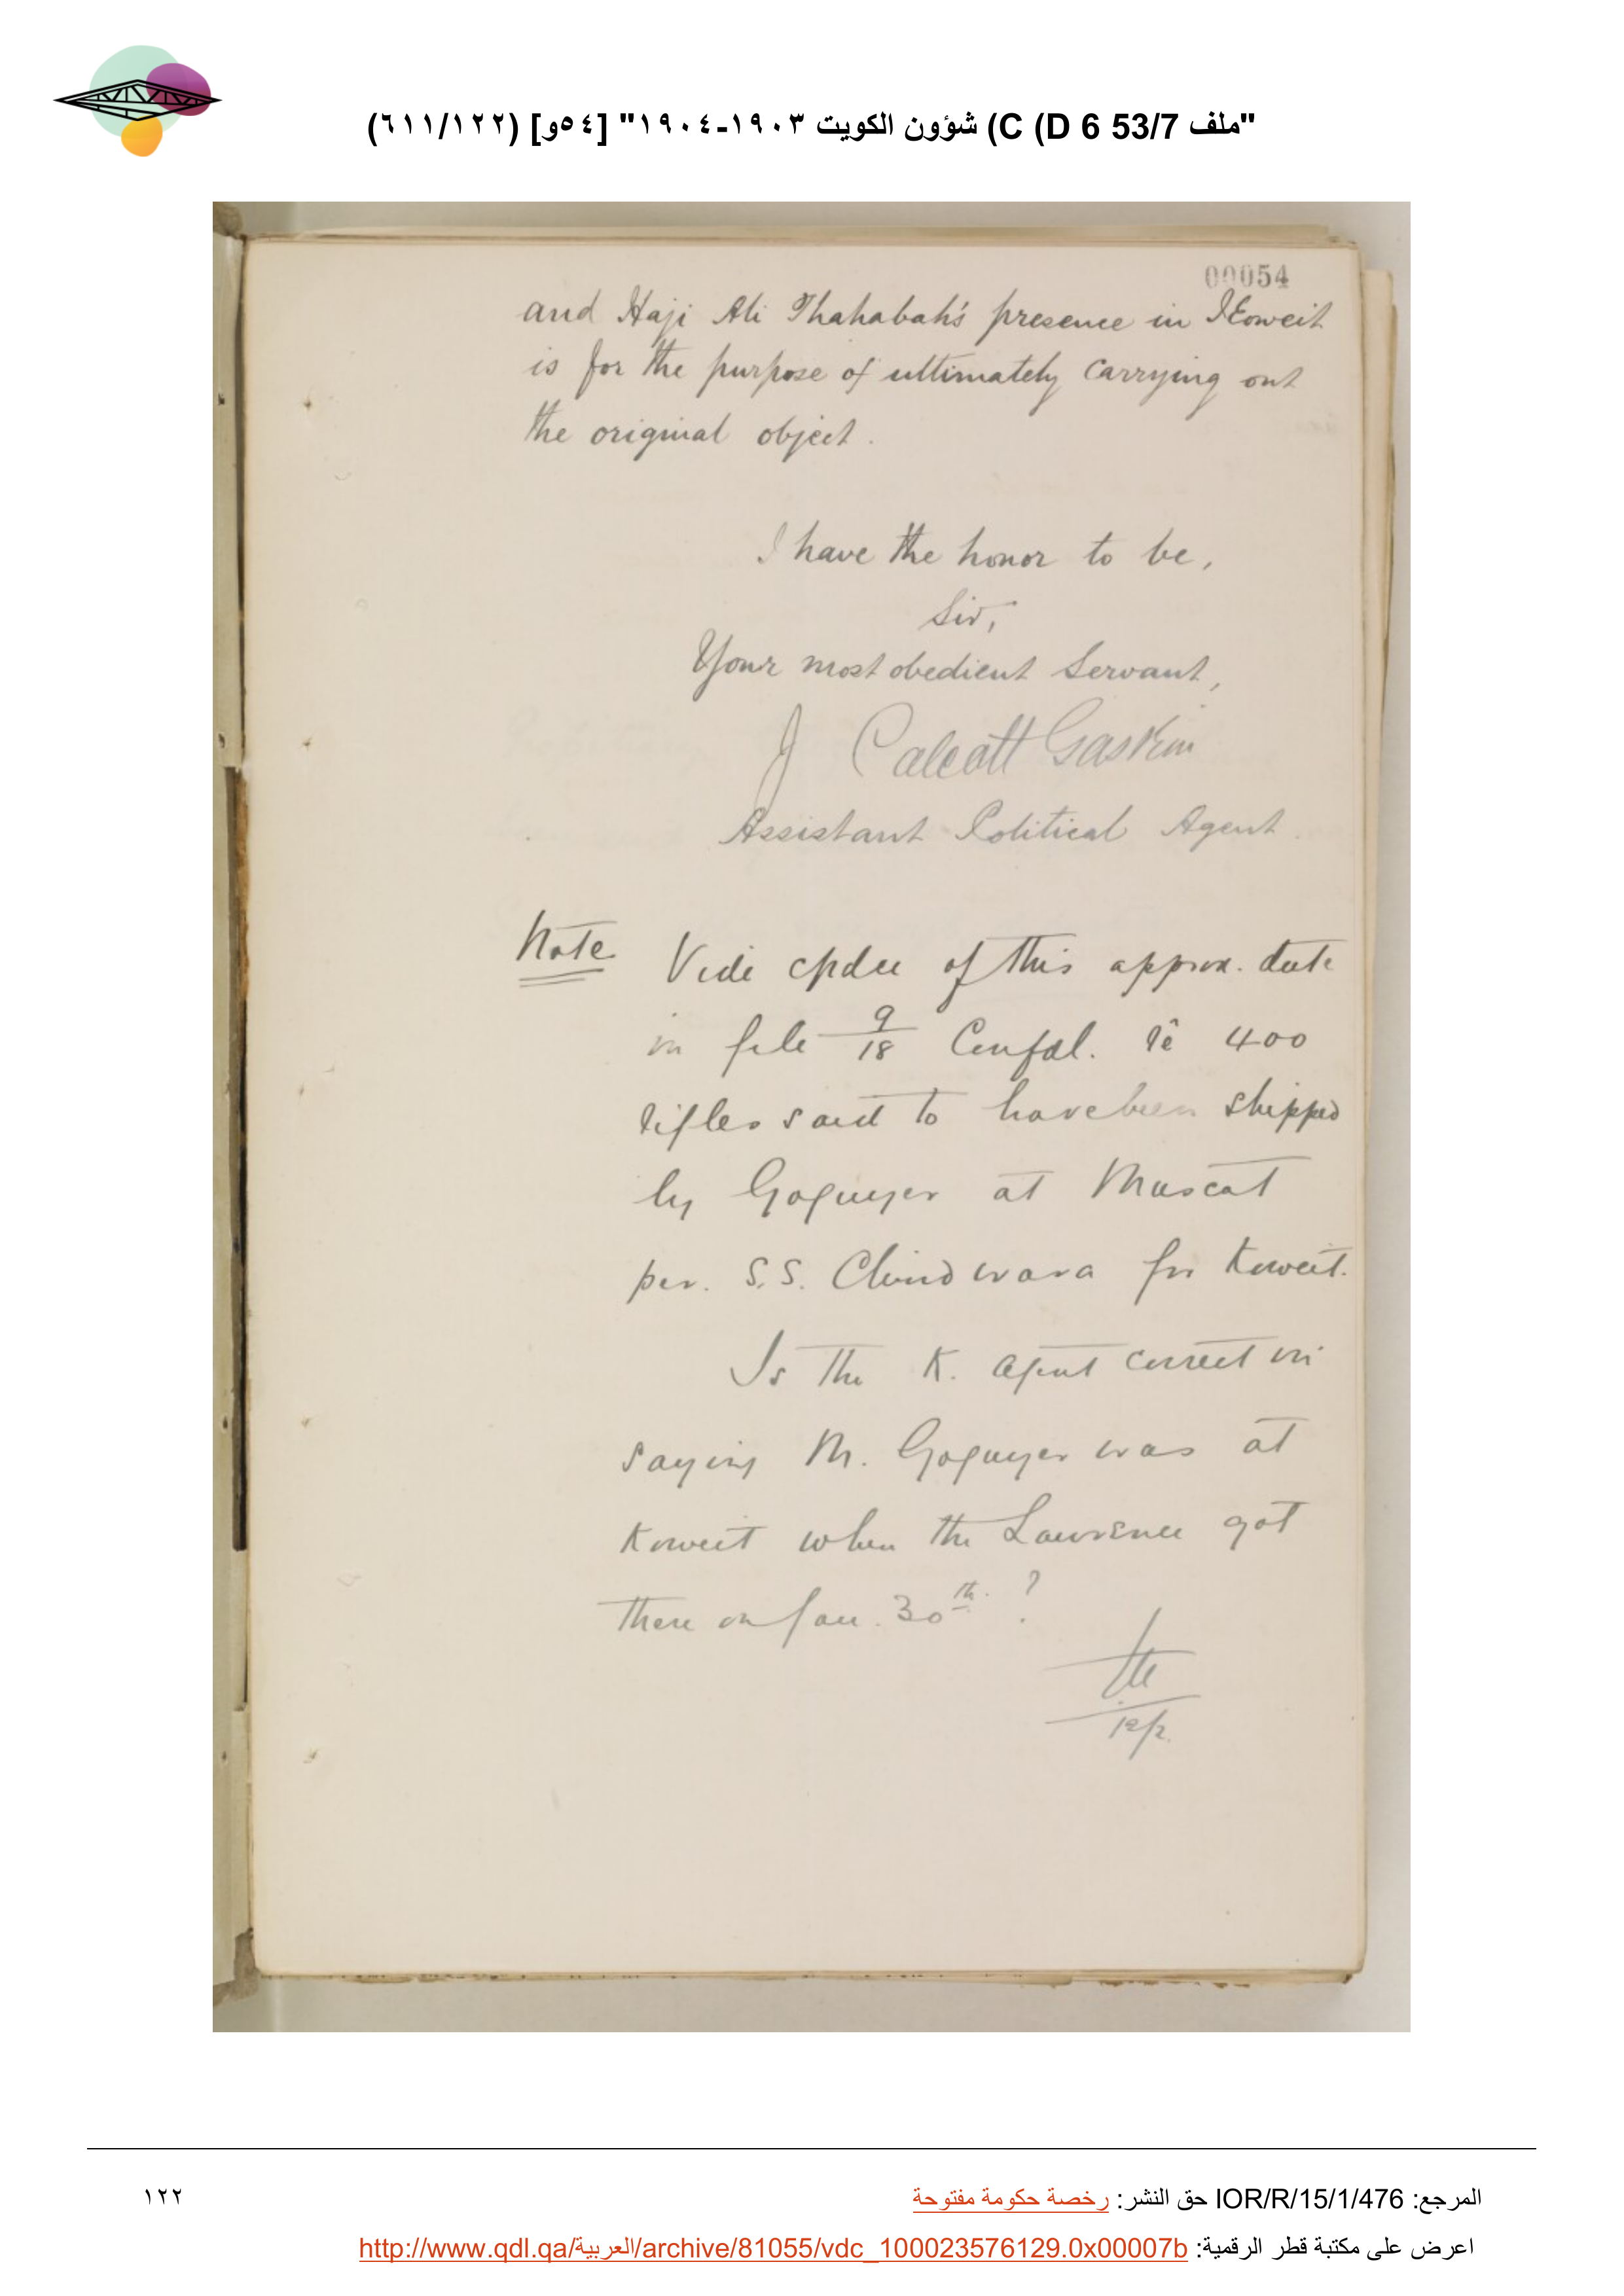 "ملف 53/7 D 6) C) شؤون الكويت ١٩٠٣-١٩٠٤" [٥٤و] (٦١١/١٢٢)
00054
and Haji Ali Thahabah's presence in Koweit
is for the purpose of ultimately carrying out
the original object.
I have the honor to be,
Sir,
Your most obedient Servant,
J Calcott Gaskin
Assistant Political Agent.
Note Vide cpdce of this approx. date
in file 9/18 Confdl. rê 400
rifles said to have been shipped
by Goguyer at Muscat
per. S.S. Chindwara for Koweit.
Is the K. Agent correct in
saying M. Goguyer was at
Koweit when the Lawrence got
there on Jan. 30th. ?
12/2.
المرجع: IOR/R/15/1/476 حق النشر: رخصة حكومة مفتوحة
١٢٢
اعرض على مكتبة قطر الرقمية: http://www.qdl.qa/العربية/archive/81055/vdc_100023576129.0x00007b